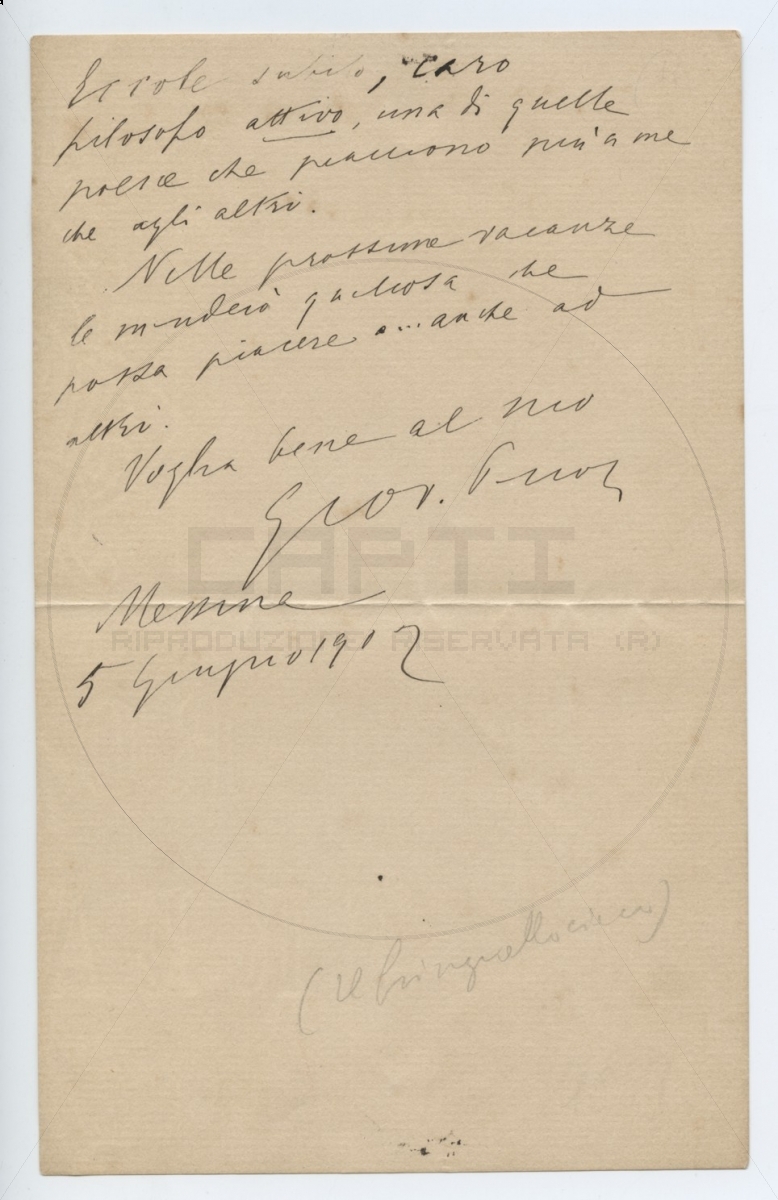 Eccole subito, caro
filosofo attivo, una di quelle
poesie che piacciono più a me
che agli altri.
Nelle prossime vacanze
le manderò qualcosa che
possa piacere ... anche ad
altri.
Voglia bene al suo
Giov. Pascoli
CAPTI
Messina
RIPRODUZIONE RISERVATA (R)
5 Giugno 1902
(Il fringuello cieco)